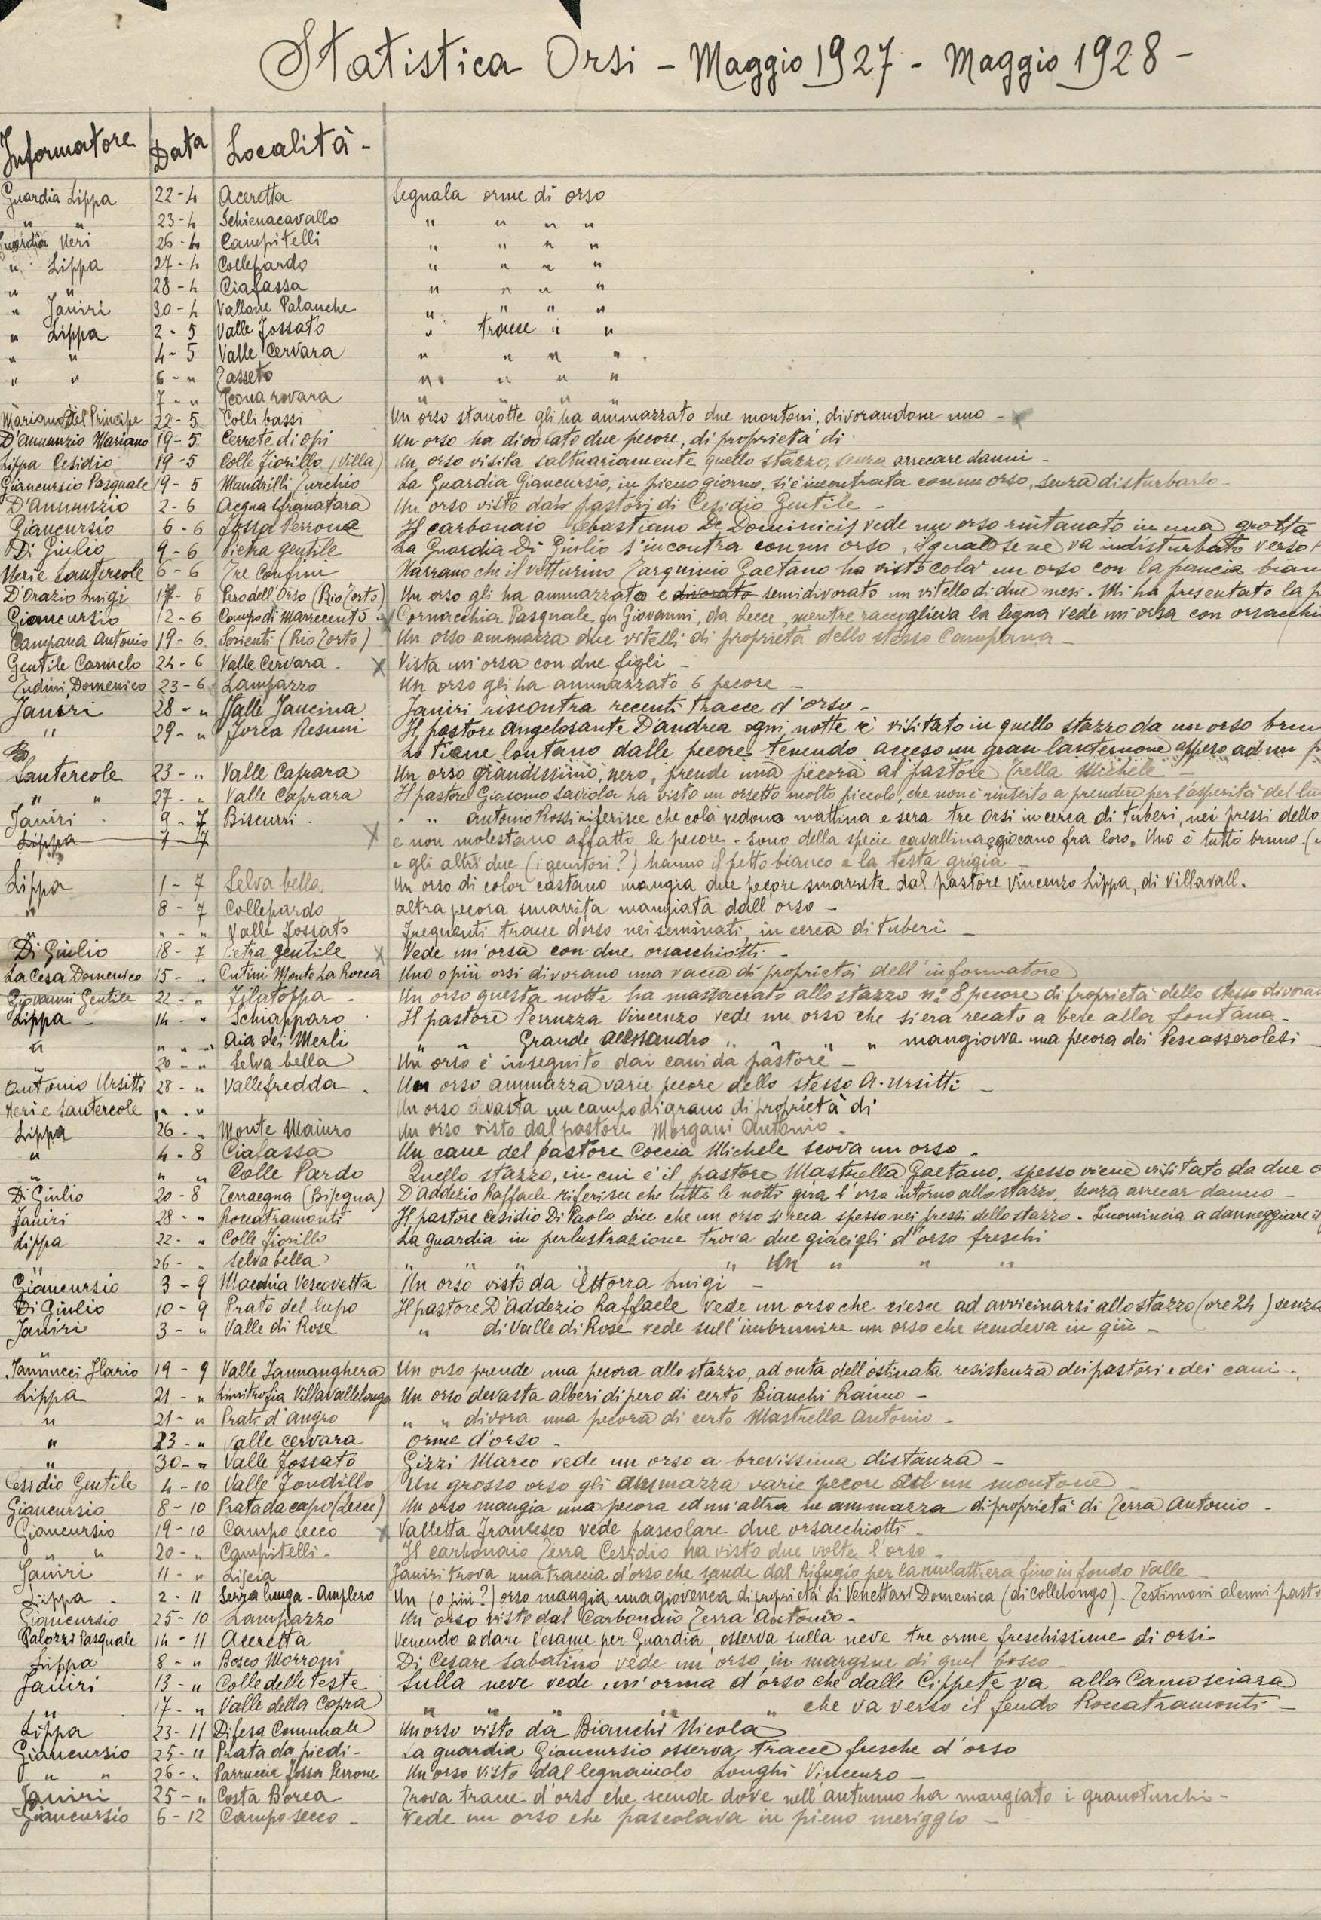 Statistica Orsi - Maggio 1927 - Maggio 1928 -
Informatore Data Località -
Guardia Lippa 22-4 Aceretta Segnala orme di orso
" " 23-4 Schienacavallo " " " "
Guardia Neri 26-4 Campitelli " " " "
" Lippa 27-4 Collepardo " " " "
" " 28-4 Cialassa " " " "
" Janiri 30-4 Vallone Palanche " " " "
" Lippa 2-5 Valle Fossato " tracce " "
" " 4-5 Valle Cervara " " " "
" " 6-" Tasseto " " " "
7-" " " " "
Mariano Del Principe 22-5 Colli bassi Un orso stanotte gli ha ammazzato due montoni, divorandone uno -
D'Annunzio Mariano 19-5 Cerrete di Opi Un orso ha divorato due pecore, di proprietà di
Lippa Cesidio 19-5 Colle Fiorillo (Villa) Un orso visita saltuariamente quello stazzo, senza arrecare danni -
Giancursio Pasquale 19-5 Mandrilli La Guardia Giancursio, in pieno giorno, si è incontrata con un orso, senza disturbarlo -
D'Annunzio 2-6 Acqua Sfranatara Un orso visto dai pastori di Cesidio Gentile -
Giancursio 6-6 Fossa Perrone Il carbonaio Sebastiano De Dominicis vede un orso rintanato in una grotta
Di Giulio 9-6 Pietra gentile La Guardia Di Giulio s'incontra con un orso, il quale se ne va indisturbato verso
Neri e Santercole 6-6 Tre Confini Narrano che il vetturino Tarquinio Gaetano ha visto colà un orso con la pancia bian
D'Orazio Luigi 17-6 (Rio Torto) Un orso gli ha ammazzato e divorato semidivorato un vitello di due mesi. Mi ha presentato la p
Giancursio 12-6 Campo di Marecento Cornacchia Pasquale, fu Giovanni, da Lecce, mentre raccoglieva la legna vede un'orsa con orsacchi
Campana Antonio 19-6 Sorienti (Rio Torto) Un orso ammazza due vitelli di proprietà dello stesso Campana -
Gentile Carmelo 24-6 Valle Cervara - x Vista un'orsa con due figli -
Tudini, Domenico 23-6 Lampazzo Un orso gli ha ammazzato 6 pecore -
Janiri 28-" Valle Jancina Janiri riscontra recenti tracce d'orso -
" 29-" Forca Resuni Il pastore Angelosante D'Andrea ogni notte è visitato in quello stazzo da un orso brun
Lo tiene lontano dalle pecore, tenendo acceso un gran lanternone appeso ad un p
Santercole 23-" Valle Caprara Un orso grandissimo, nero, prende una pecora al pastore Trella Michele -
" " 27-" Valle Caprara Il pastore Giacomo Saviola ha visto un orsetto molto piccolo, che non è riuscito a prendere per l'asperità del lu
Janiri 9-7 Biscurri " " Antonio Rossi riferisce che colà vedono mattina e sera tre orsi in cerca di tuberi, nei pressi dello
Lippa 7-7 x e non molestano affatto le pecore - Sono della specie cavallina e giocano fra loro. Uno è tutto bruno
e gli altri due (i genitori?) hanno il petto bianco e la testa grigia -
Lippa 1-7 Selva bella Un orso di color castano mangia due pecore smarrite dal pastore Vincenzo Lippa, di Villavall.
" 8-7 Collepardo altra pecora smarrita mangiata dall'orso -
" - " Valle Fossato Frequenti tracce d'orso nei seminati, in cerca di tuberi -
Di Giulio 18-7 Pietra gentile x Vede un'orsa con due orsacchiotti -
La Cesa Domenico 15-" Cutini Monte La Rocca Uno o più orsi divorano una vacca di proprietà dell'informatore
Giovanni Gentile 22-" Filatoppa - Un orso questa notte ha massacrato allo stazzo n° 8 pecore di proprietà dello stesso divoran
Lippa - 14-" Schiapparo Il pastore Peruzza Vincenzo vede un orso che si era recato a bere alla fontana -
" " - " Aia dei Merli " " Grande Alessandro " " " mangiava una pecora dei Pescasserolesi -
20-" Selva bella Un orso è inseguito dai cani da pastore -
Antonio Ursitti 28-" Vallefredda - Un orso ammazza varie pecore dello stesso A. Ursitti -
Neri e Santercole " - " Un orso devasta un campo di grano di proprietà di
Lippa 26-" Monte Mainro Un orso visto dal pastore Morgani Antonio -
" 4-8 Cialassa Un cane del pastore Coccia Michele scova un orso -
" " " Colle Pardo Quello stazzo, in cui è il pastore Mastrella Gaetano, spesso viene visitato da due o
Di Giulio 20-8 Terraegna (Bisegna) D'Addezio Raffaele riferisce che tutte le notti gira l'orso intorno allo stazzo, senza arrecar danno -
Janiri 28-" Roccatramonti Il pastore Cesidio Di Paolo dice che un orso si reca spesso nei pressi dello stazzo - Incomincia a danneggiare
Lippa 22-" Colle Fiorillo La guardia in perlustrazione trova due giacigli d'orso freschi
" 26-" Selva bella " " " Un " " "
Giancursio 3-9 Macchia Vescovetta Un orso visto da Ettorra Luigi -
Di Giulio 10-9 Prato del lupo Il pastore D'Addezio Raffaele vede un orso che riesce ad avvicinarsi allo stazzo (ore 24) senza
Janiri 3-" Valle di Rose " di Valle di Rose vede sull'imbrunire un orso che scendeva in giù -
Iannucci Ilario 19-9 Valle Iannanghera Un orso prende una pecora allo stazzo, ad onta dell'ostinata resistenza dei pastori e dei cani -
Lippa 21-" Limitrofia Villavallelonga Un orso devasta alberi di pero di certo Bianchi Ranno -
" 21-" Prati d'Angro " " divora una pecora di certo Mastrella Antonio -
" 23-" Valle Cervara Orme d'orso -
" 30-" Valle Fossato Gizzi Marco vede un orso a brevissima distanza -
Cesidio Gentile 4-10 Valle Fondillo Un grosso orso gli ammazza varie pecore ed un montone
Giancursio 8-10 Prata da capo (Lecce) Un orso mangia una pecora ed un'altra ne ammazza di proprietà di Terra Antonio -
Giancursio 19-10 Campo secco x Valletta Francesco vede pascolare due orsacchiotti -
" " 20-" Campitelli - Il carbonaio Terra Cesidio ha visto due volte l'orso -
Janiri 11-" Liscia Janiri trova una traccia d'orso che scende dal Rifugio per la mulattiera fino in fondo valle -
Lippa - 2-11 Serra lunga - Amplero Un (o più?) orso mangia una giovenca di proprietà di Venettari Domenica (di Collelongo) - Testimoni alcuni past
Giancursio 25-10 Lampazzo Un orso visto dal Carbonaio Terra Antonio -
Palozzi Pasquale 14-11 Aceretta Venendo a dare l'esame per Guardia, osserva sulla neve tre orme freschissime di orsi -
Lippa 8-" Bosco Morroni Di Cesare Sabatino vede un orso in margine di quel bosco -
Janiri 13-" Colle delle Teste Sulla neve vede un'orma d'orso che dalle Cippete va alla Camosciara
" 17-" Valle della Capra " " " che va verso il feudo Roccatramonti -
Lippa 23-11 Difesa Comunale Un orso visto da Bianchi Nicola
Giancursio 25-11 Prata da piedi - La guardia Giancursio osserva tracce fresche d'orso
" " 26-" Parruccia Fossa Perrone Un orso visto dal legnaiolo Longhi Vincenzo -
Janiri 25-" Costa Borea Trova tracce d'orso che scende dove nell'autunno ha mangiato i granoturchi -
Giancursio 6-12 Campo secco - Vede un orso che pascolava in pieno meriggio -